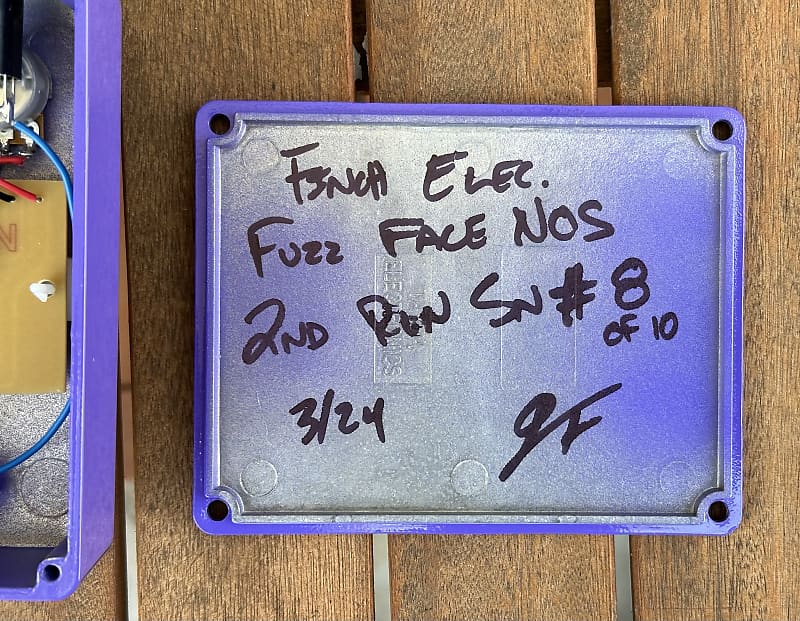 FINCH ELEC.
FUZZ FACE NOS
2ND RUN SN # 8
OF 10
3/24